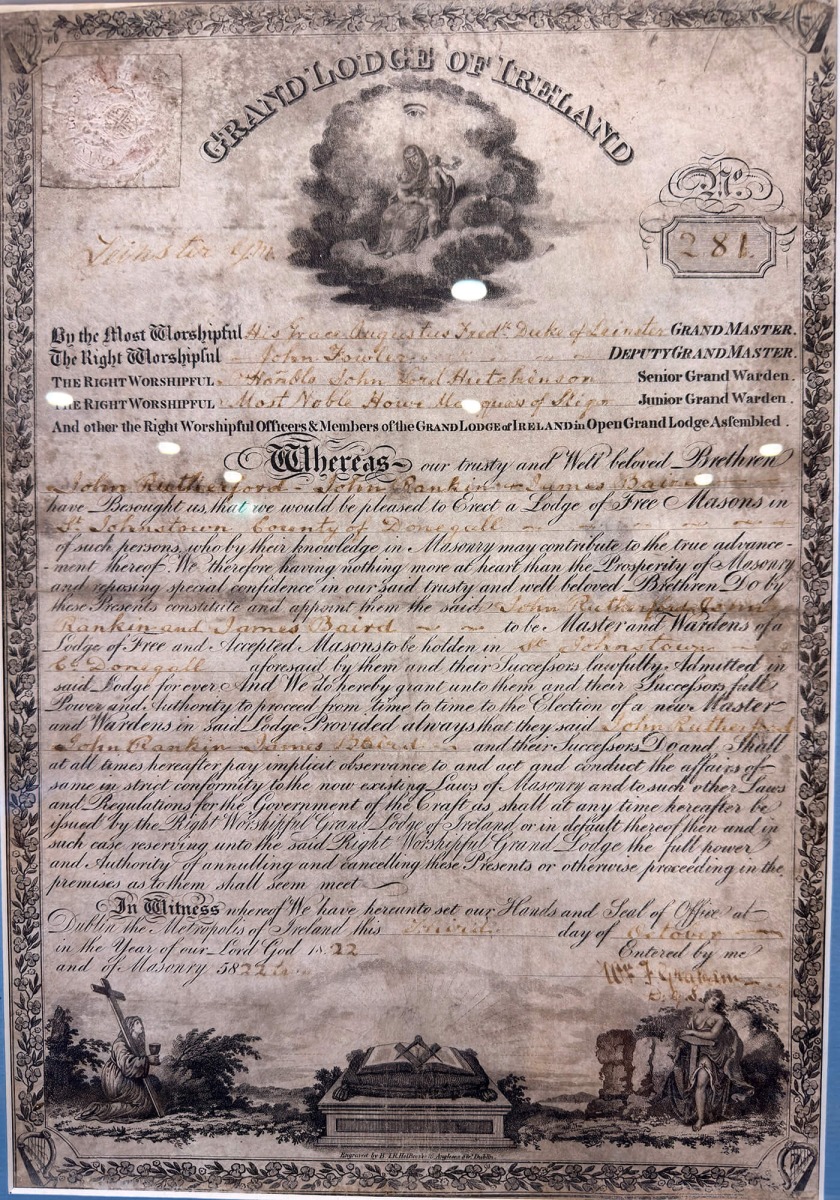 GRAND LODGE OF IRELAND
No.
281.
Leinster G.M.
By the Most Worshipful His Grace Augustus Fredk. Duke of Leinster GRAND MASTER.
The Right Worshipful John Fowler DEPUTY GRAND MASTER.
THE RIGHT WORSHIPFUL Honble John Lord Hutchinson Senior Grand Warden.
THE RIGHT WORSHIPFUL Most Noble Howe Marquess of Sligo Junior Grand Warden.
And other the Right Worshipful Officers & Members of the GRAND LODGE of IRELAND in Open Grand Lodge Assembled.
Whereas our trusty and Well beloved Brethren
John Rutherford John Rankin James Baird
have Besought us, that we would be pleased to Erect a Lodge of Free Masons in
St Johnstown County of Donegall
of such persons, who by their knowledge in Masonry may contribute to the true advance-
-ment thereof. We therefore having nothing more at heart than the Prosperity of Masonry
and reposing special confidence in our said trusty and well beloved Brethren Do by
these Presents constitute and appoint them the said John Rutherford John
Rankin and James Baird to be Master and Wardens of a
Lodge of Free and Accepted Masons to be holden in St Johnstown
Co Donegall aforesaid by them and their Successors lawfully Admitted in
said Lodge for ever And We do hereby grant unto them and their Successors full
Power and Authority to proceed from time to time to the Election of a new Master
and Wardens in said Lodge Provided always that they said John Rutherford
John Rankin James Baird and their Successors Do and Shall
at all times hereafter pay implicit observance to and act and conduct the affairs of
same in strict conformity to the now existing Laws of Masonry and to such other Laws
and Regulations for the Government of the Craft as shall at any time hereafter be
issued by the Right Worshipful Grand Lodge of Ireland, or in default thereof then and in
such case reserving unto the said Right Worshipful Grand Lodge the full power
and Authority of annulling and cancelling these Presents or otherwise proceeding in the
premises as to them shall seem meet
In Witness whereof We have hereunto set our Hands and Seal of Office at
Dublin the Metropolis of Ireland this day of October
in the Year of our Lord God 1822 Entered by me
and of Masonry 5822 Wm F Graham
D.G.S.
Engraved by